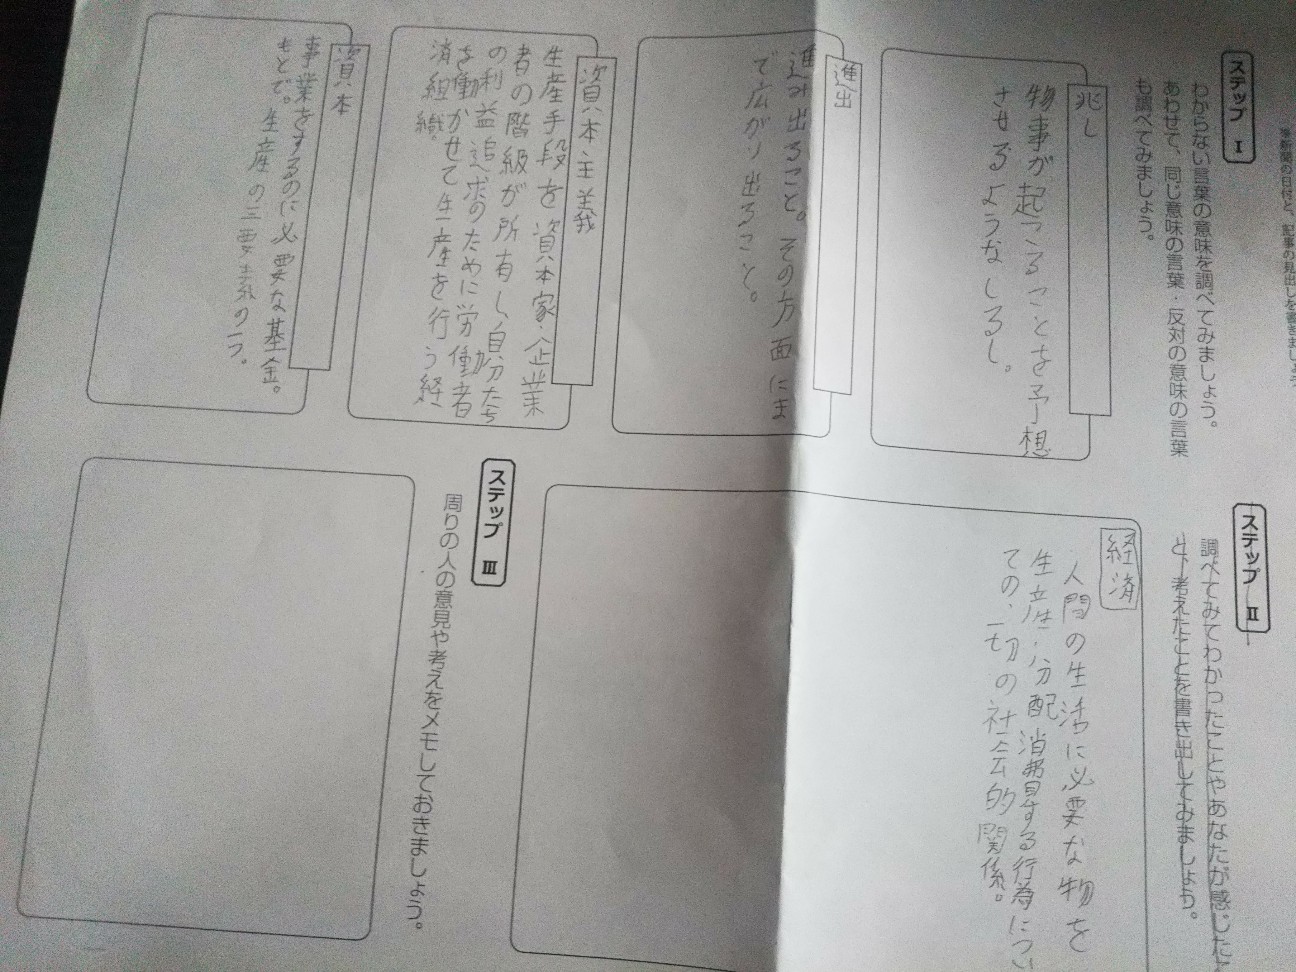 記事の見出しを書きましょう
ステップ Ⅰ
わからない言葉の意味を調べてみましょう。
あわせて、同じ意味の言葉・反対の意味の言葉
も調べてみましょう。
兆し
物事が起こることを予想
させるようなしるし。
進出
進み出ること。その方面にま
で広がり出ること。
資本主義
生産手段を資本家・企業
者の階級が所有し、自分たち
の利益追求のために労働者
を働かせて生産を行う経
済組織。
資本
事業をするのに必要な基金。
もとで。生産の三要素の一つ。
ステップ Ⅱ
調べてみてわかったことやあなたが感じたこ
と、考えたことを書き出してみましょう。
経済
人間の生活に必要な物を
生産・分配・消費する行為につい
ての、一切の社会的関係。
ステップ Ⅲ
周りの人の意見や考えをメモしておきましょう。